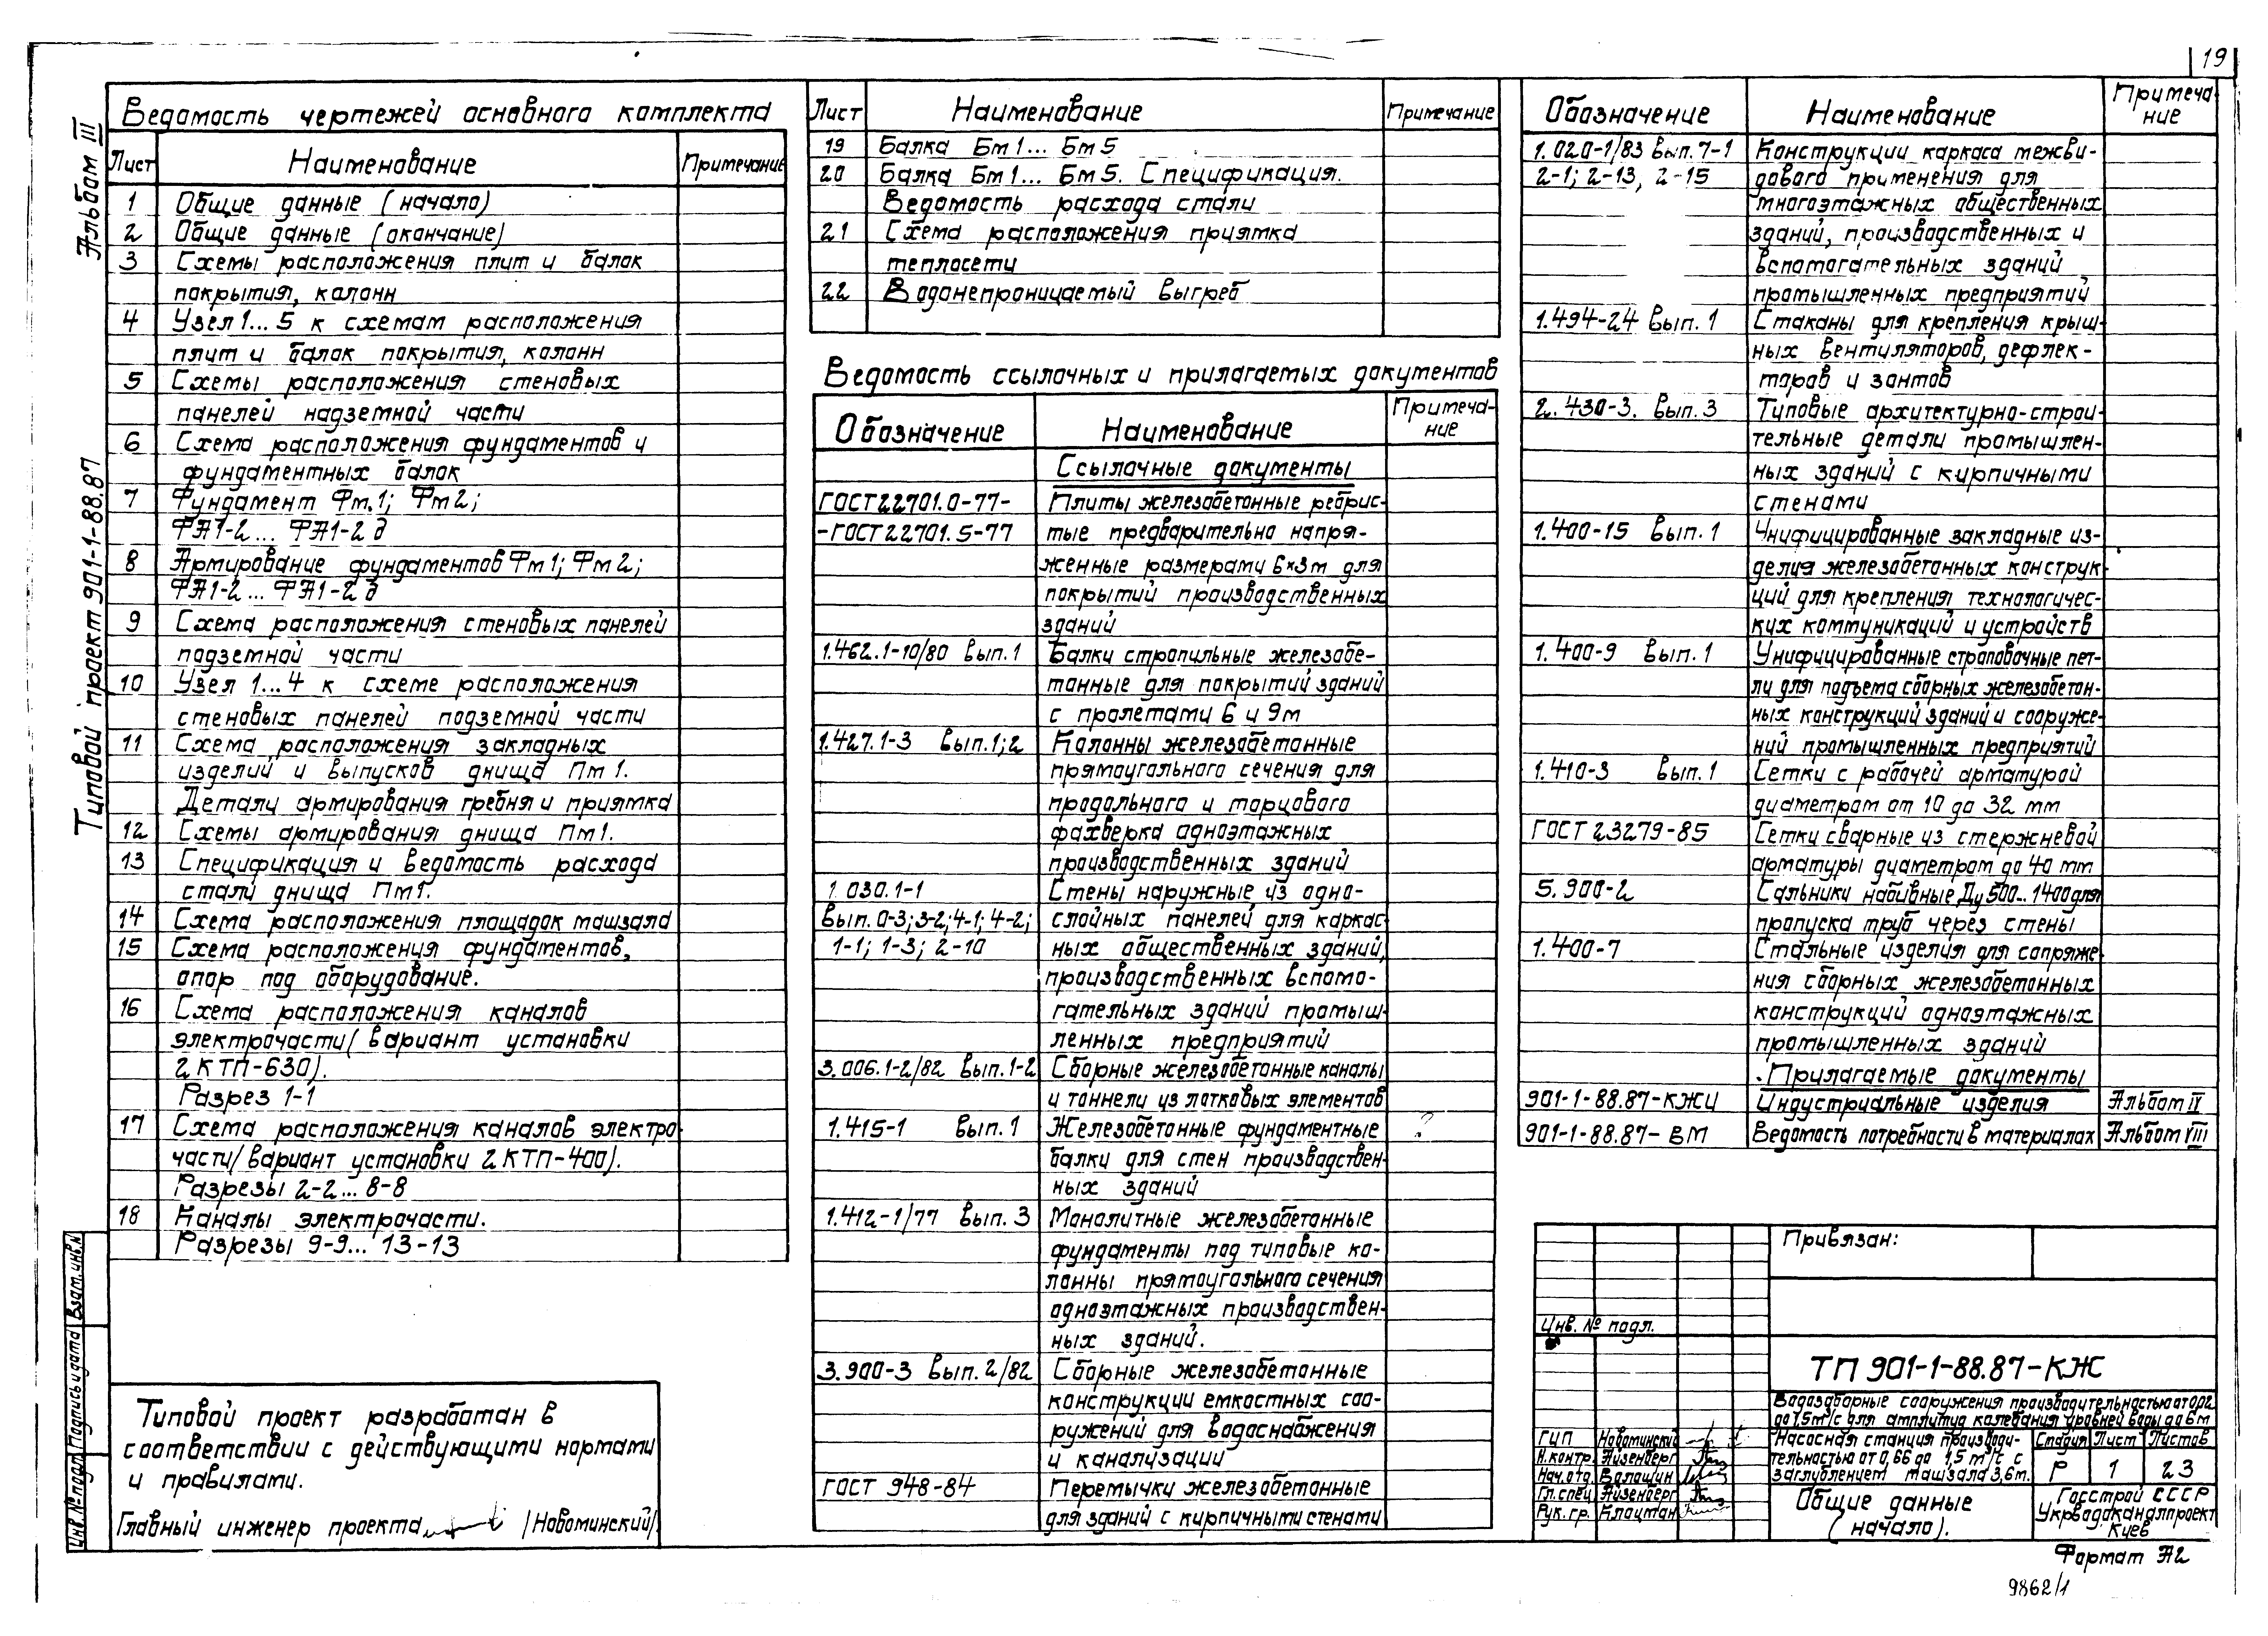 19
Альбом III
Типовой проект 901-1-88.87
Взам.инв.N
Подпись и дата
Инв.№ подл
Ведомость чертежей основного комплекта
Лист Наименование Примечание
1 Общие данные (начало)
2 Общие данные (окончание)
3 Схемы расположения плит и балок
покрытия, колонн
4 Узел 1... 5 к схемам расположения
плит и балок покрытия, колонн
5 Схемы расположения стеновых
панелей надземной части
6 Схема расположения фундаментов и
фундаментных балок
7 Фундамент Фм.1; Фм2;
ФА1-2... ФА1-2д
8 Армирование фундаментов Фм1; Фм2;
ФА1-2... ФА1-2д
9 Схема расположения стеновых панелей
подземной части
10 Узел 1...4 к схеме расположения
стеновых панелей подземной части
11 Схема расположения закладных
изделий и выпусков днища Пм1.
Детали армирования гребня и приямка
12 Схемы армирования днища Пм1.
13 Спецификация и ведомость расхода
стали днища Пм1.
14 Схема расположения площадок машзала
15 Схема расположения фундаментов,
опор под оборудование.
16 Схема расположения каналов
электрочасти/вариант установки
2КТП-630).
Разрез 1-1
17 Схема расположения каналов электро
части/вариант установки 2КТП-400).
Разрезы 2-2... 8-8
18 Каналы электрочасти.
Разрезы 9-9... 13-13
Типовой проект разработан в
соответствии с действующими нормами
и правилами.
Главный инженер проекта /Новоминский/
Лист Наименование Примечание
19 Балка Бм1... Бм5
20 Балка Бм1... Бм5. Спецификация.
Ведомость расхода стали
21 Схема расположения приямка
теплосети
22 Водонепроницаемый выгреб
Ведомость ссылочных и прилагаемых документов
Обозначение Наименование Примеча-
ние
Ссылочные документы
ГОСТ22701.0-77- Плиты железобетонные ребрис-
-ГОСТ22701.5-77 тые предварительно напря-
женные размерами 6×3м для
покрытий производственных
зданий
1.462.1-10/80 Вып.1 Балки стропильные железобе-
тонные для покрытий зданий
с пролетами 6 и 9м
1.427.1-3 Вып.1;2 Колонны железобетонные
прямоугольного сечения для
продольного и торцового
фахверка одноэтажных
производственных зданий
1 030.1-1 Стены наружные из одно-
Вып. 0-3; 3-2; 4-1; 4-2; слойных панелей для каркас
1-1; 1-3; 2-10 ных общественных зданий,
производственных вспомо-
гательных зданий промыш-
ленных предприятий
3.006.1-2/82 Вып.1-2 Сборные железобетонные каналы
и тоннели из лотковых элементов
1.415-1 Вып.1 Железобетонные фундаментные ?
балки для стен производствен-
ных зданий
1.412-1/77 Вып. 3 Монолитные железобетонные
фундаменты под типовые ко-
лонны прямоугольного сечения
одноэтажных производствен-
ных зданий.
3.900-3 Вып. 2/82 Сборные железобетонные
конструкции емкостных соо-
ружений для водоснабжения
и канализации
ГОСТ 948-84 Перемычки железобетонные
для зданий с кирпичными стенами
Обозначение Наименование Примеча-
ние
1.020-1/83 Вып.7-1 Конструкции каркаса межви-
2-1; 2-13, 2-15 дового применения для
многоэтажных общественных
зданий, производственных и
вспомогательных зданий
промышленных предприятий
1.494-24 Вып. 1 Стаканы для крепления крыш-
ных вентиляторов, дефлек-
торов и зонтов
2.430-3. Вып. 3 Типовые архитектурно-строи-
тельные детали промышлен-
ных зданий с кирпичными
стенами
1.400-15 Вып. 1 Унифицированные закладные из-
делия железобетонных конструк
ций для крепления технологичес-
ких коммуникаций и устройств
1.400-9 Вып. 1 Унифицированные строповочные пет-
ли для подъема сборных железобетон-
ных конструкций зданий и сооруже-
ний промышленных предприятий
1.410-3 Вып. 1 Сетки с рабочей арматурой
диаметром от 10 до 32 мм
ГОСТ 23279-85 Сетки сварные из стержневой
арматуры диаметром до 40 мм
5.900-2 Сальники набивные Ду500...1400для
пропуска труб через стены
1.400-7 Стальные изделия для сопряже-
ния сборных железобетонных
конструкций одноэтажных
промышленных зданий
Прилагаемые документы
901-1-88.87-КЖИ Индустриальные изделия Альбом IV
901-1-88.87-ВМ Ведомость потребности в материалах Альбом VIII
Привязан:
Инв. № подл.
ТП 901-1-88.87-КЖ
Водозаборные сооружения производительностью от 0,2
до 1,5м³/с для амплитуд колебания уровней воды до 6м
ГИП Новоминский
Н.контр. Айзенберг
Нач.отд. Волошин
Гл.спец Айзенберг
Рук.гр. Клоцман
Насосная станция производи-
тельностью от 0,66 до 1,5 м³/с с
заглублением машзала 3,6м.
Стадия Лист Листов
Р 1 23
Общие данные
(начало).
Госстрой СССР
Укрводоканалпроект
Киев
Формат А2
9862/1